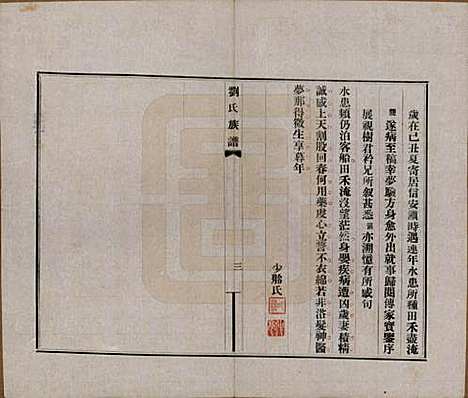 歲在己丑夏寄居信安鎮時遇連年水患所種田禾盡淹
遂病至稿幸夢驗方身愈外出就事歸閱傳家寶鑒序
展視樹君矜兄所叙甚悉 亦溯憶有所感句
水患頻仍泊客船田禾淹沒望茫然身嬰疾病遭凶歲妻積精
誠感上天割股回春何用藥虔心立誓不衣綿若非浴髮神醫
夢那得微生享暮年
少勝氏
劉氏族譜
三